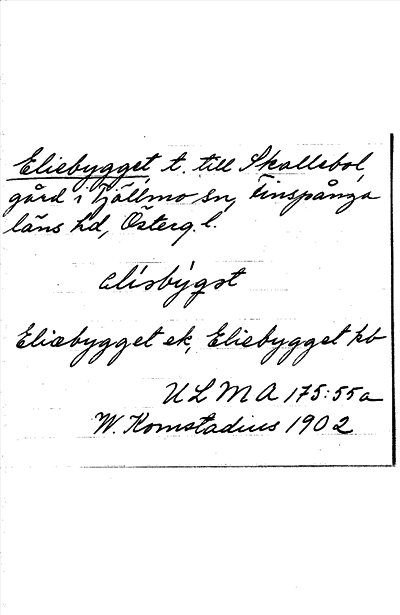 Eliebygget t. till Skallebol,
gård i Tjällmo sn, Finspånga
läns hd, Österg. l.
alísby̌gst
Eliæbygget ek, Eliebygget kb
ULMA 175:55a
W. Komstadius 1902